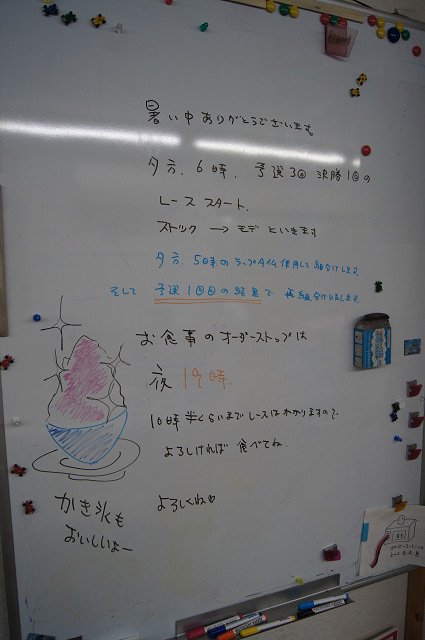 暑い中ありがとうございます
夕方、6時、予選3回 決勝1回の
レース スタート、
ストック → モデ といきます
夕方、5時のラップタイム使用して組分けします。
そして 予選1回目の結果で 再組分けします。
お食事のオーダーストップは
夜 19時、
10時半くらいまでレースはかかりますので
よろしければ 食べてね。
よろしくね♡
かき氷も
おいしいよー